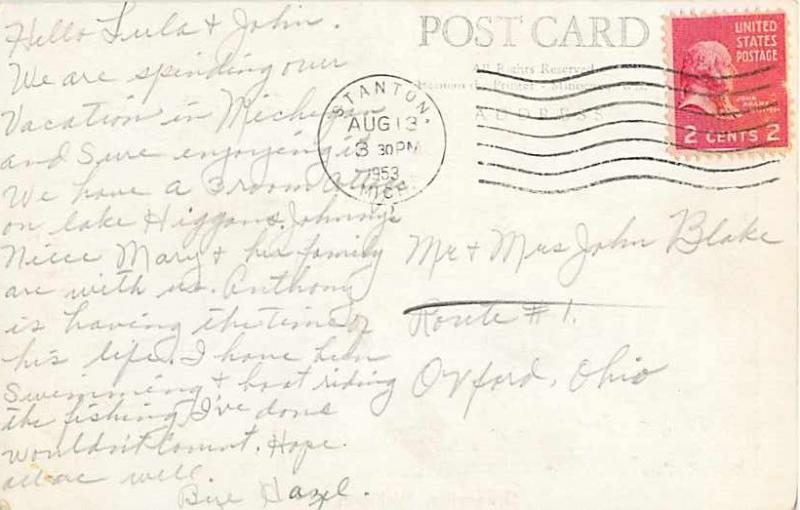 Hello Lula + John.
We are spending our
Vacation in Michigan
and Sure enjoying it.
We have a 3 room
on lake Higgans. Johnny's
Niece Mary + his family
are with us. Anthony
is having the time of
his life. I have been
Swimming + boat riding
the fishing I've done
wouldn't Count. Hope
all are well.
Bye Hazel.
POST CARD
All Rights Reserved
Printer - Minocqua, Wis.
ADDRESS
STANTON
AUG 13
3 30 PM
1953
MICH.
UNITED
STATES
POSTAGE
JOHN ADAMS
2 CENTS 2
Mr + Mrs John Blake
Route #1.
Oxford, Ohio